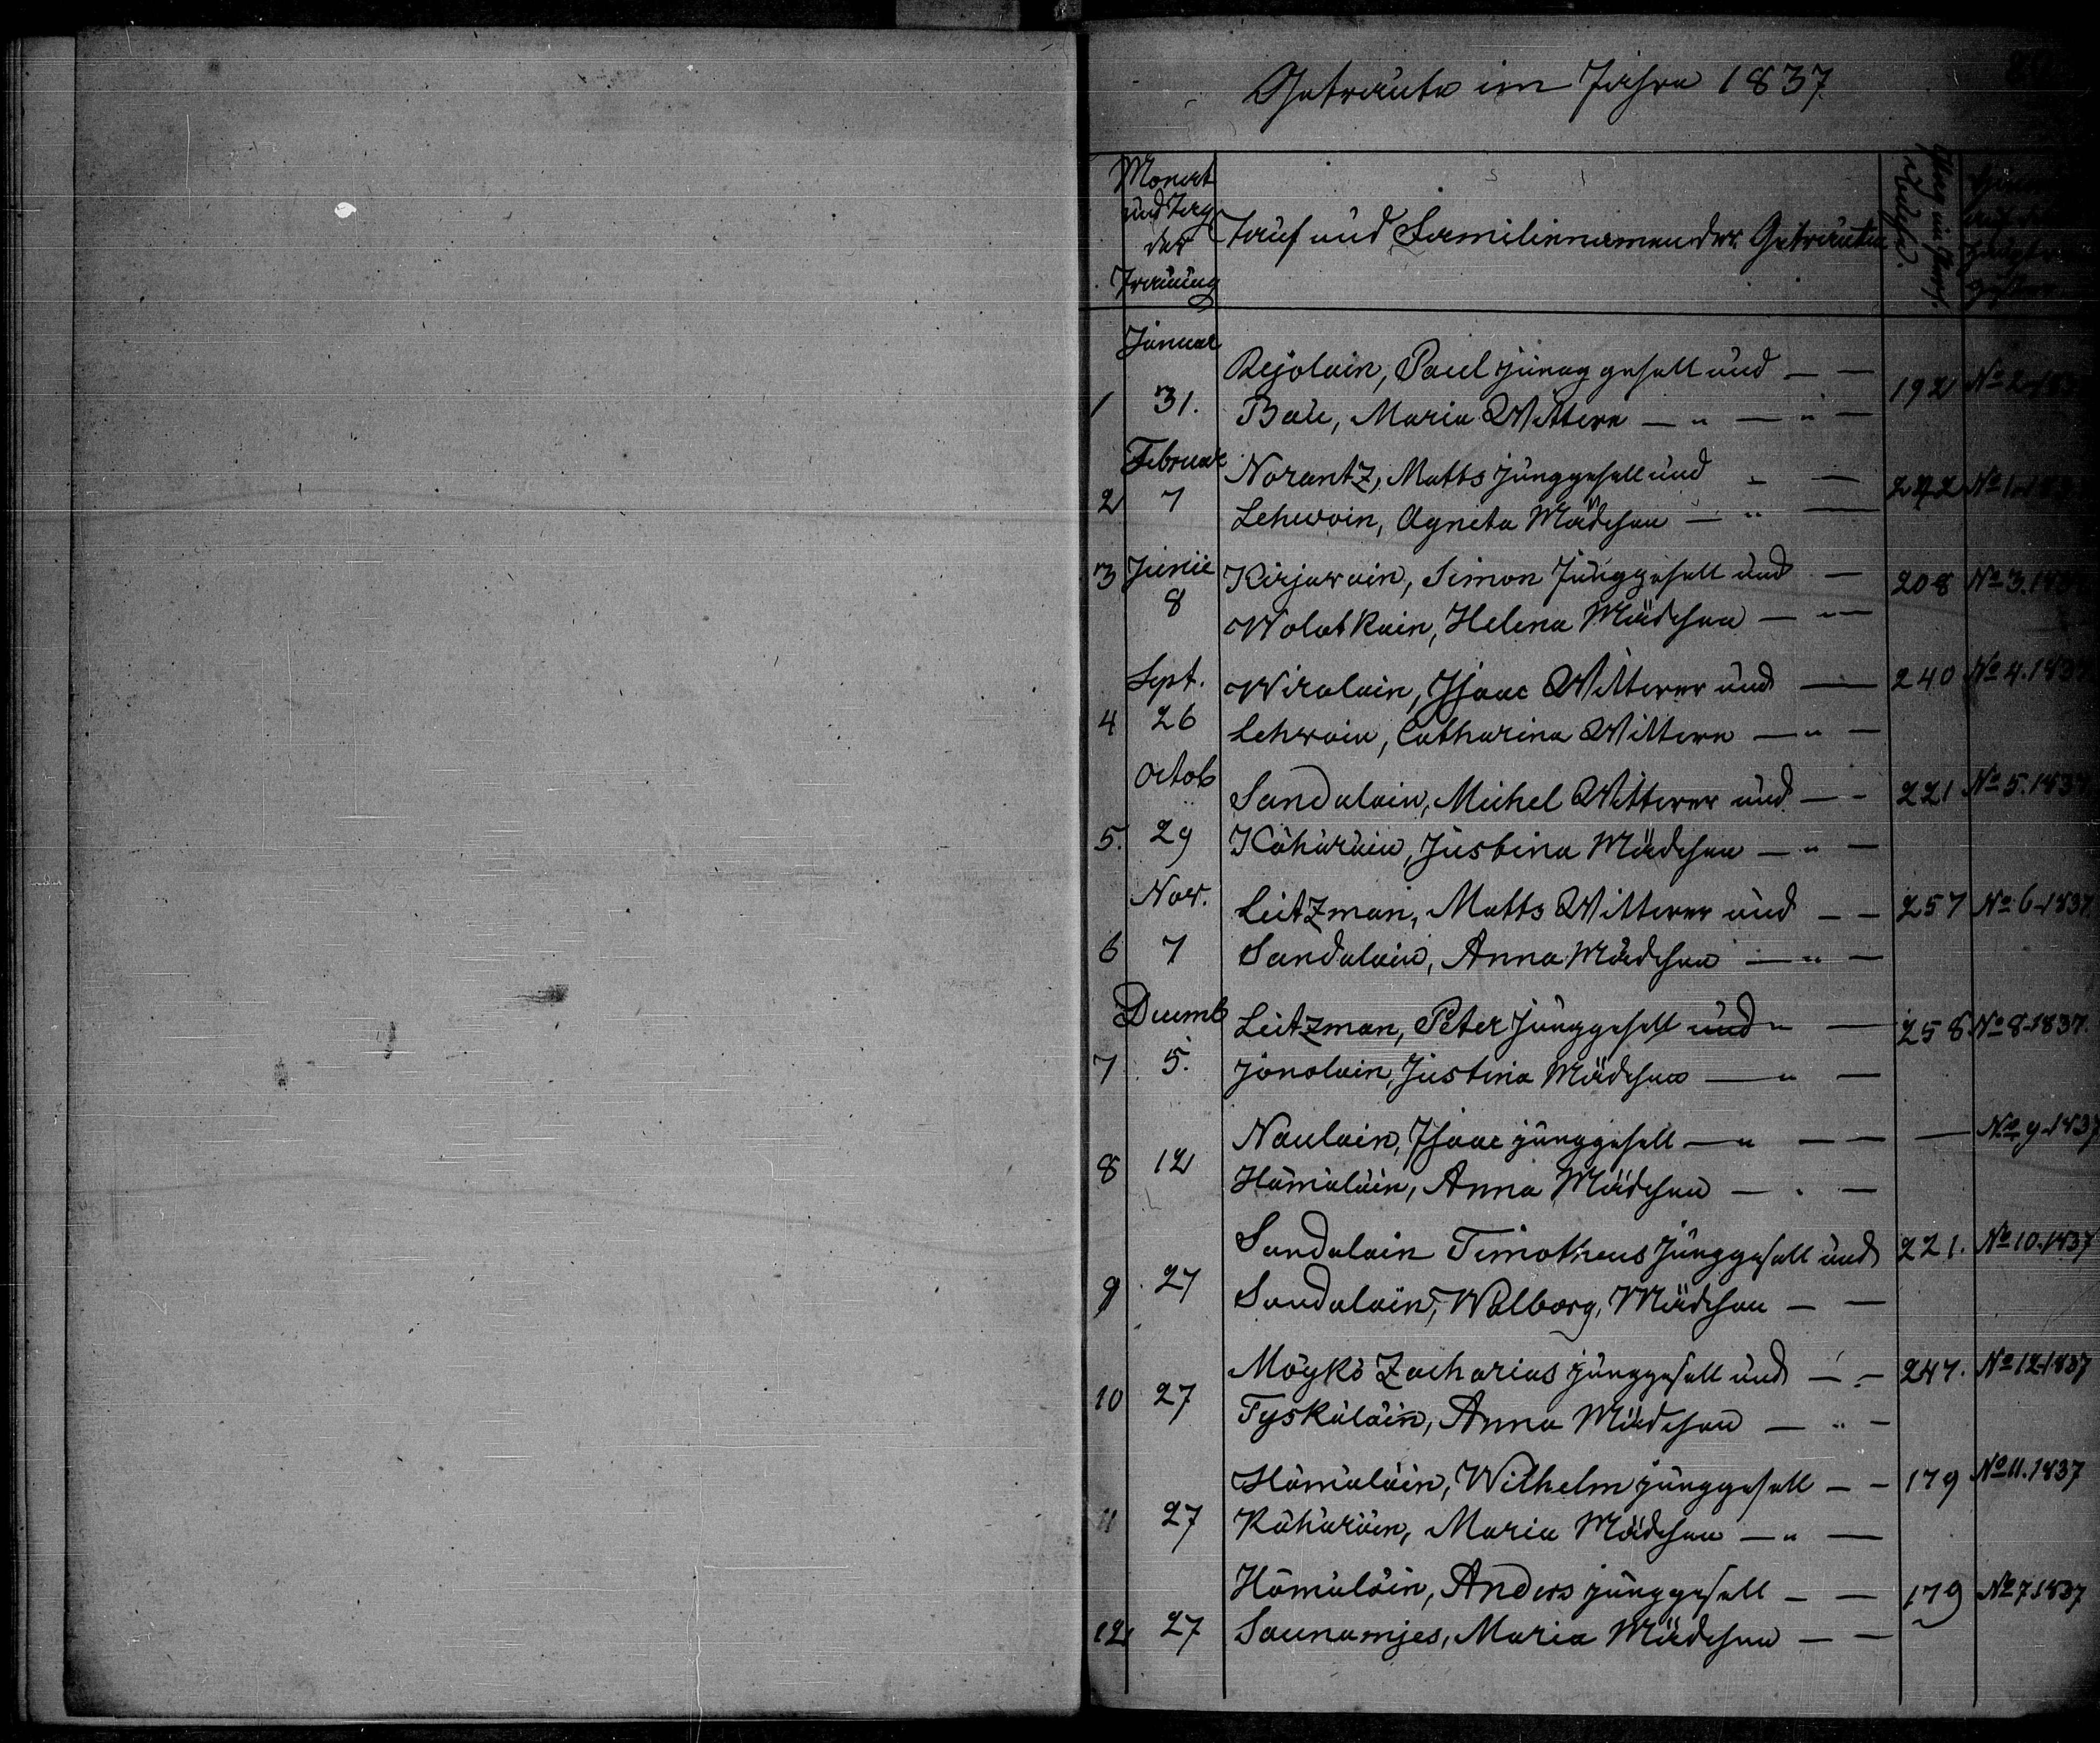 Getraute im Jahre 1837
Monat
und Tag
der
Trauung
Tauf und Familiennamen der Getrauten
Januar
Rejolain, Paul junggesell und — —
1 31. 192 No 2
Bali, Maria Wittwe — " — " —
Februar
Norantz, Matts junggesell und " —
2 7 No 1
Lehwoin, Agneta Mädchen — " —
3 Junii Kirjawain, Simon Junggesell und — 208 No 3.
8
Wolatkain, Helena Mädchen — " —
Sept. Wirolain, Isaac Wittwer und — 240 No 4. 1837
4 26 Lehwoin, Catharina Wittwe — " —
Octob
Sandulain, Michel Wittwer und — - 221 No 5. 1837
5. 29 Kähäräin, Justina Mädchen — " —
Nov.
Leitzman, Matts Wittwer und — — 257 No 6-1837
6 7 Sandulain, Anna Mädchen — " —
Decemb Leitzman, Peter Junggesell und " — 258 No 8-1837
7 5. Jonolain, Justina Mädchen — " —
Naulain, Isaac junggesell — " — — — No 9-1837
8 12
Hämäläin, Anna Mädchen — . —
Sandulain Timotheus Junggesell und 221. No 10.1837
9 27
Sandulain, Walborg, Mädchen — —
Möykö Zacharias junggesell und — " — 247. No 12-1837
10 27
Tyskäläin, Anna Mädchen — " —
Hämäläin, Wilhelm junggesell — — 179 No 11. 1837
11 27 Kähäräin, Maria Mädchen — " —
Hämäläin, Anders junggesell — — 179 No 7 1837
12 27 Saunamjes, Maria Mädchen — —